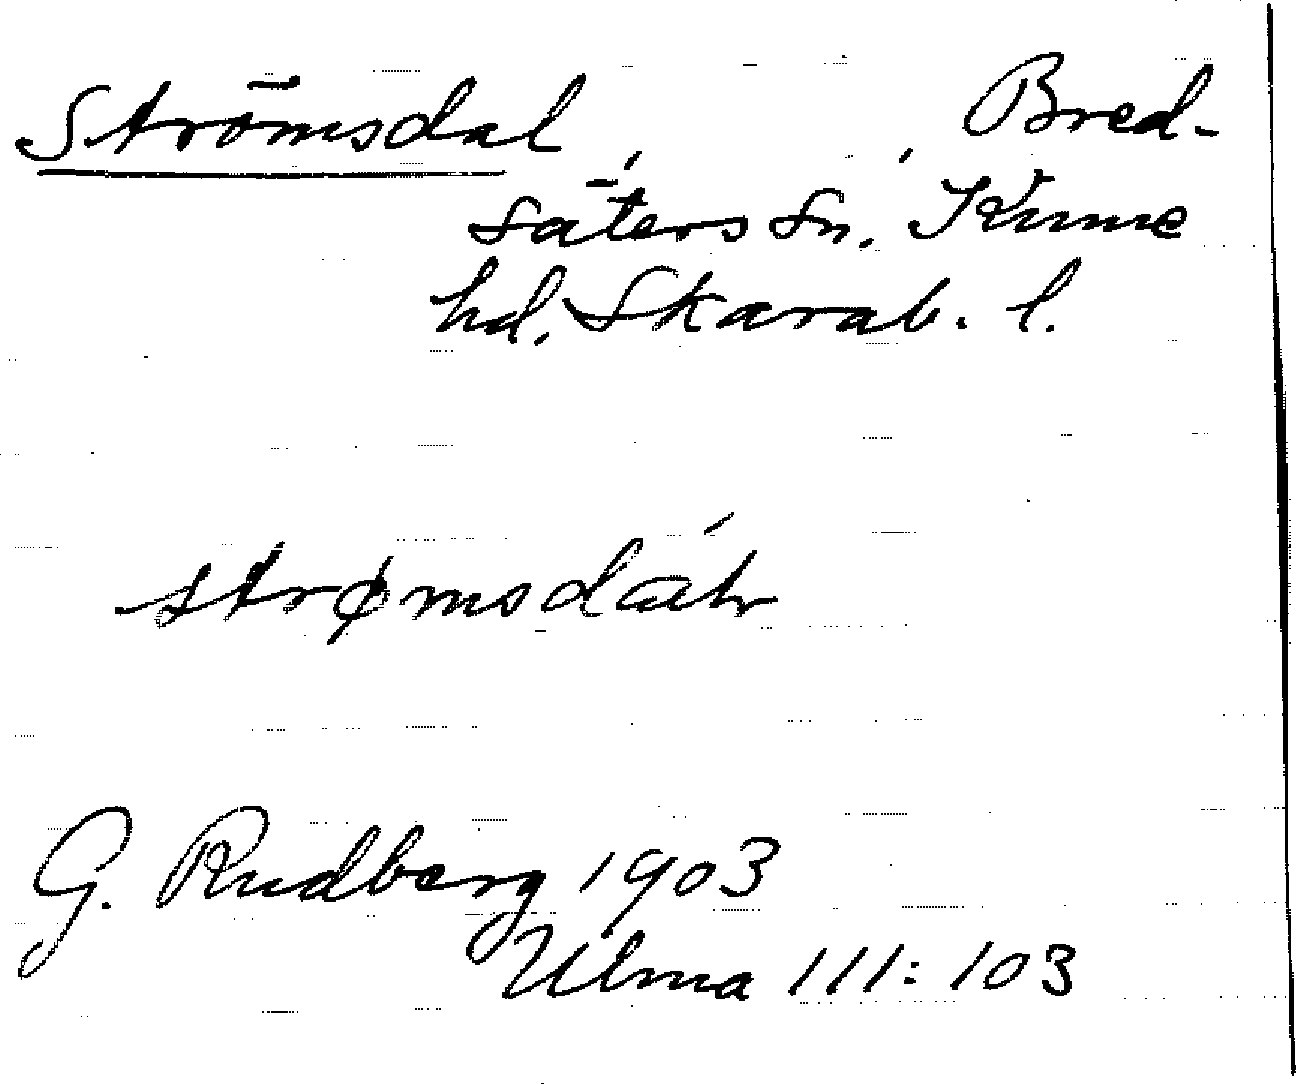 Strömsdal, , Bred-
säters sn. Kinne
hd. Skarab. l.
G. Rudberg 1903
Ulma 111:103